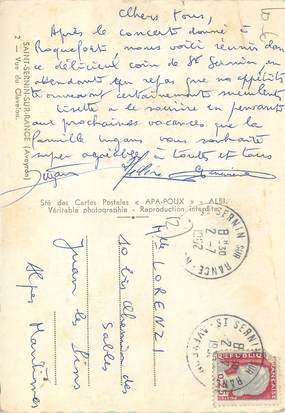 Chers tous,
Après le concert donné à
Roquefort, nous voici réunis dans
ce délicieux coin de St Sernin, en
attendant un repas que nos appétits
trouveront certainement succulent
Lisette a le sourire en pensant
aux prochaines vacances que la
famille vous souhaite
super agréables à toutes et tous
SAINT-SERNIN-SUR-RANCE (Aveyron)
2 - Vue du
Sté des Cartes Postales « APA-POUX » - ALBI
Véritable photographie - Reproduction interdite
ST SERNIN SUR RANCE
8H30
2-7
1962
Mlle LORENZI
10 bis Chemin des
Sables
Juan les Pins
Alpes Maritimes
ST SERNIN SUR RANCE AVEYRON